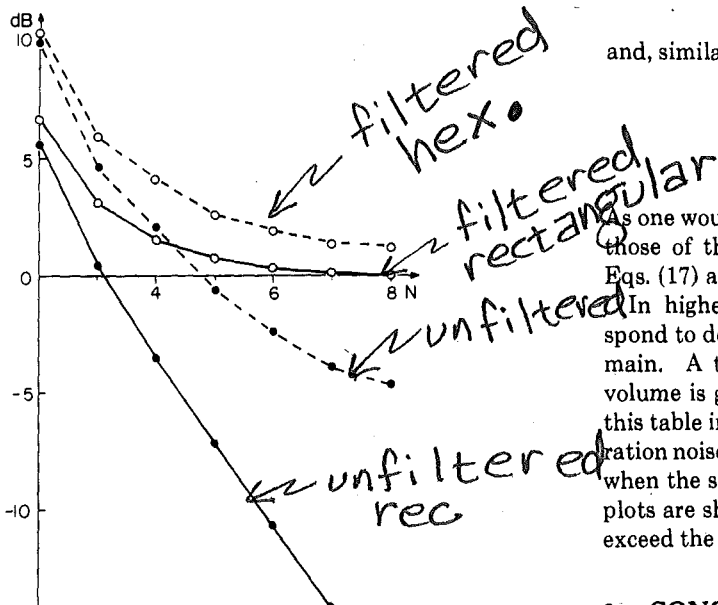 dB
10
5
0
-5
-10
4
6
8 N
filtered
hex.
filtered
rectangular
unfiltered
unfiltered
rec
and, simila
As one wou
those of th
Eqs. (17) a
In highe
spond to de
main. A t
volume is g
this table in
ration noise
when the s
plots are sh
exceed the
CONC